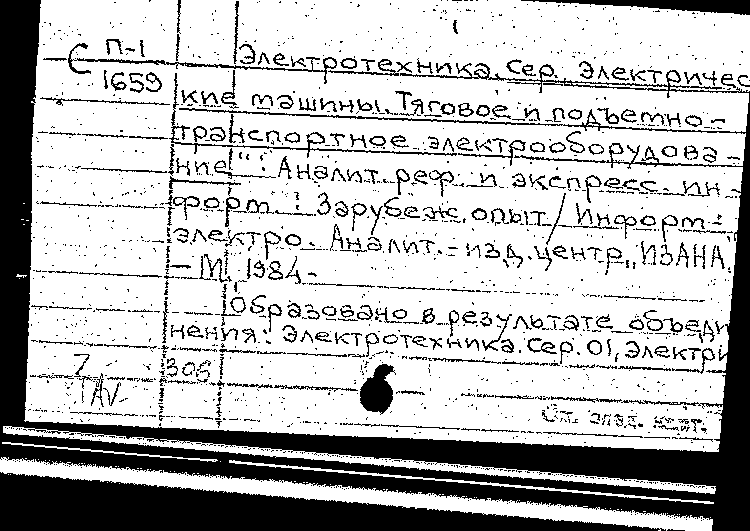 С П-1
1659
Электротехника. Сер. Электричес
кие машины. Тяговое и подъемно-
транспортное электрооборудова-
ние": Аналит. реф. и экспресс. ин-
форм. : Зарубеж. опыт / Информ-
электро. Аналит.-изд. центр „ИЗАНА"
– М. 1984 -
Образовано в результате объеди
нения: Электротехника. Сер. 01, Электри
7 306
См. след. карт.